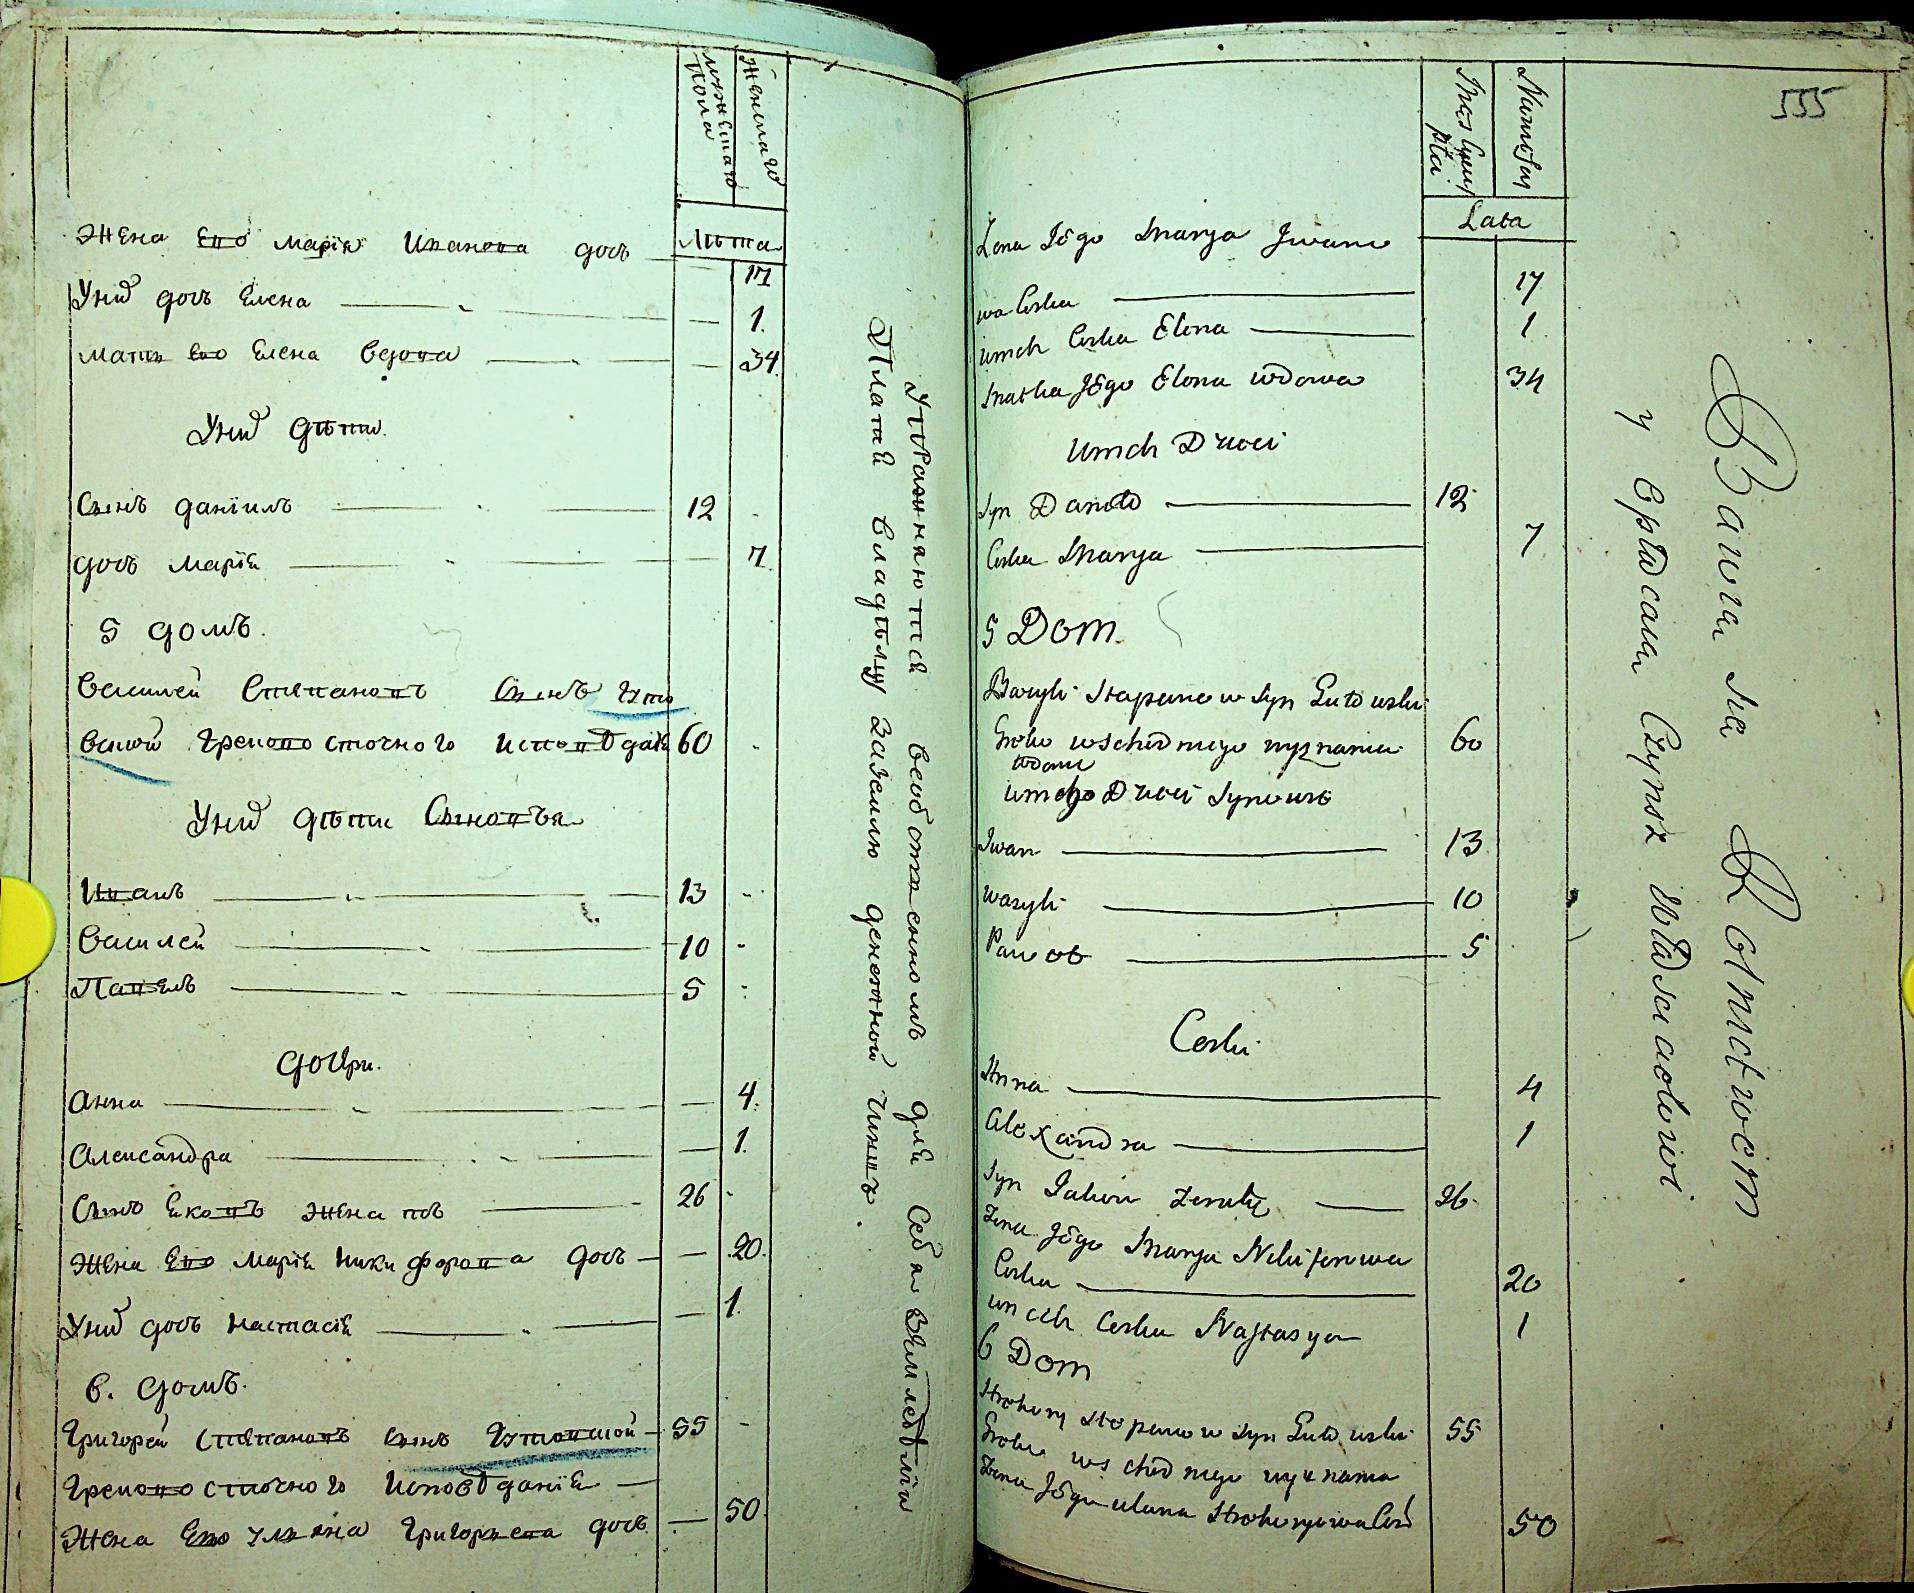 мужескаго
пола
Женскаго
Лѣта
Жена Его Марія Иванова дочь
17
Унихъ дочь Елена 1.
Мать Его Елена вдова 34.
Унихъ дѣти.
Сынъ Даніилъ 12
дочь Марія 7.
5 домъ.
Василей Степановъ Сынъ Гуто
вской Грековосточного исповѣданія 60
Унихъ дѣти Сыновья
Иванъ 13
Василей 10
Павелъ 5
дочери.
Анна 4.
Александра 1.
Сынъ Яковъ женатъ 26
Жена Его Марія Никифорова дочь 20.
Унихъ дочь Настасія 1.
6. домъ.
Григорей Степановъ Сынъ Гутовской 55
Грековосточного Исповѣданія
Жена Его Ульяна Григорьева дочь 50.
Упражняются въ собственномъ для себя земледѣліи
Платя владѣльцу Василію денежной чиншъ.
555
płci
Lata
Żona Jego Marya Iwano
wa Corka 17
umich Corka Elena 1
Matka Jego Elena wdowa 34
umich Dzieci
Syn Daniło 12
Corka Marya 7
5 Dom.
Wasyli Stepanow Syn Gutowski
Greko wschodniego wyznania 60
wdowi
umego Dzieci Synowie
Iwan 13
wasyli 10
Paweł 5
Corki
Anna 4
Alexandra 1
Syn Jakow żonaty 26
żona Jego Marya Nikiforowa
Corka 20
umich Corka Nastasya 1
6 Dom
Hrehory Stepanow Syn Gutowski 55
Greko wschodniego wyznania
żona Jego ulana Hrehoryewa Cor 50
Bawią się Rolnictwem
y Opłacaią Czynsz